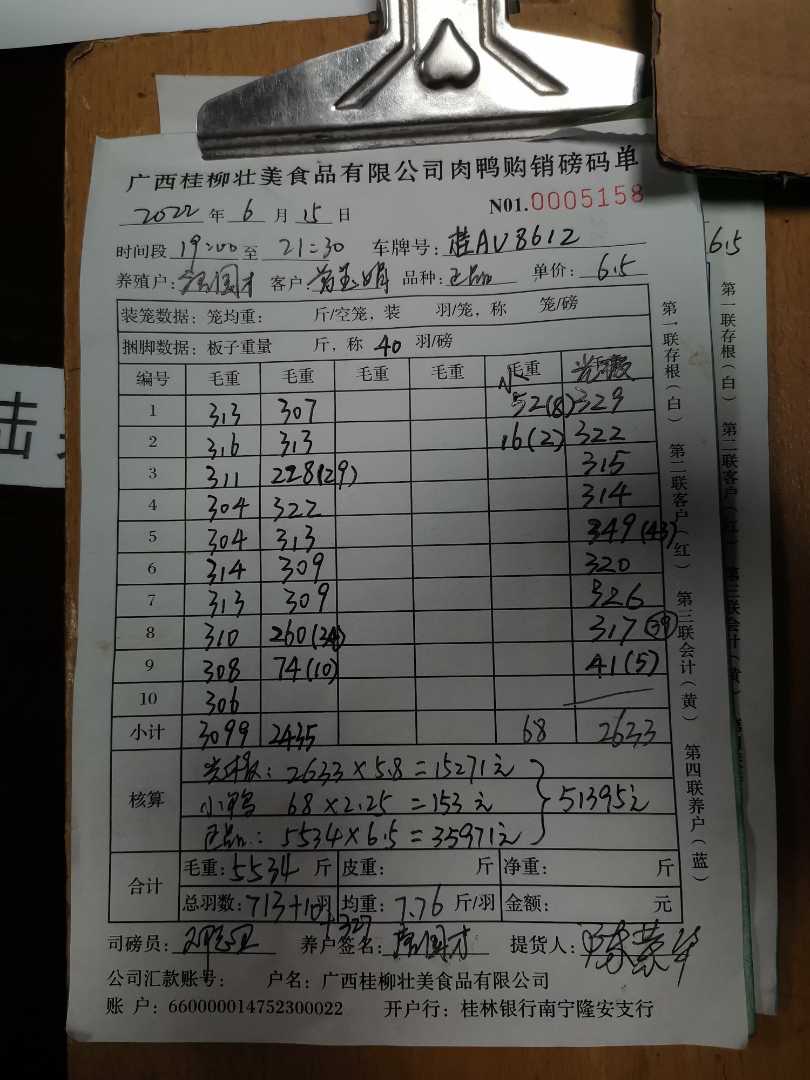 广西桂柳壮美食品有限公司肉鸭购销磅码单
2022 年 6 月 15 日 N01.0005158
时间段 19:00 至 21:30 车牌号: 桂AV8612
养殖户: 国才 客户: 品种: 正品 单价: 6.5
装笼数据: 笼均重: 斤/空笼, 装 羽/笼, 称 笼/磅
捆脚数据: 板子重量 斤, 称 40 羽/磅
编号 毛重 毛重 毛重 毛重 小 毛重
1 313 307 52(8) 329
2 316 313 16(2) 322
3 311 228(29) 315
4 304 322 314
5 304 313 349(43)
6 314 309 320
7 313 309 326
8 310 260(34) 317(39)
9 308 74(10) 41(5)
10 306
小计 3099 2435 68 2633
核算 2633×5.8=15271元
小鸭 68×2.25=153元 51395元
正品: 5534×6.5=35971元
合计 毛重: 5534 斤 皮重: 斤 净重: 斤
总羽数: 713+10羽 均重: 7.76 斤/羽 金额: 元
+327
司磅员: 养户签名: 国才 提货人:
公司汇款账号: 户名: 广西桂柳壮美食品有限公司
账 户: 660000014752300022 开户行: 桂林银行南宁隆安支行
第一联存根(白) 第二联客户(红) 第三联会计(黄) 第四联养户(蓝)
6.5
第一联存根(白) 第二联客户(红) 第三联会计(黄)
陆